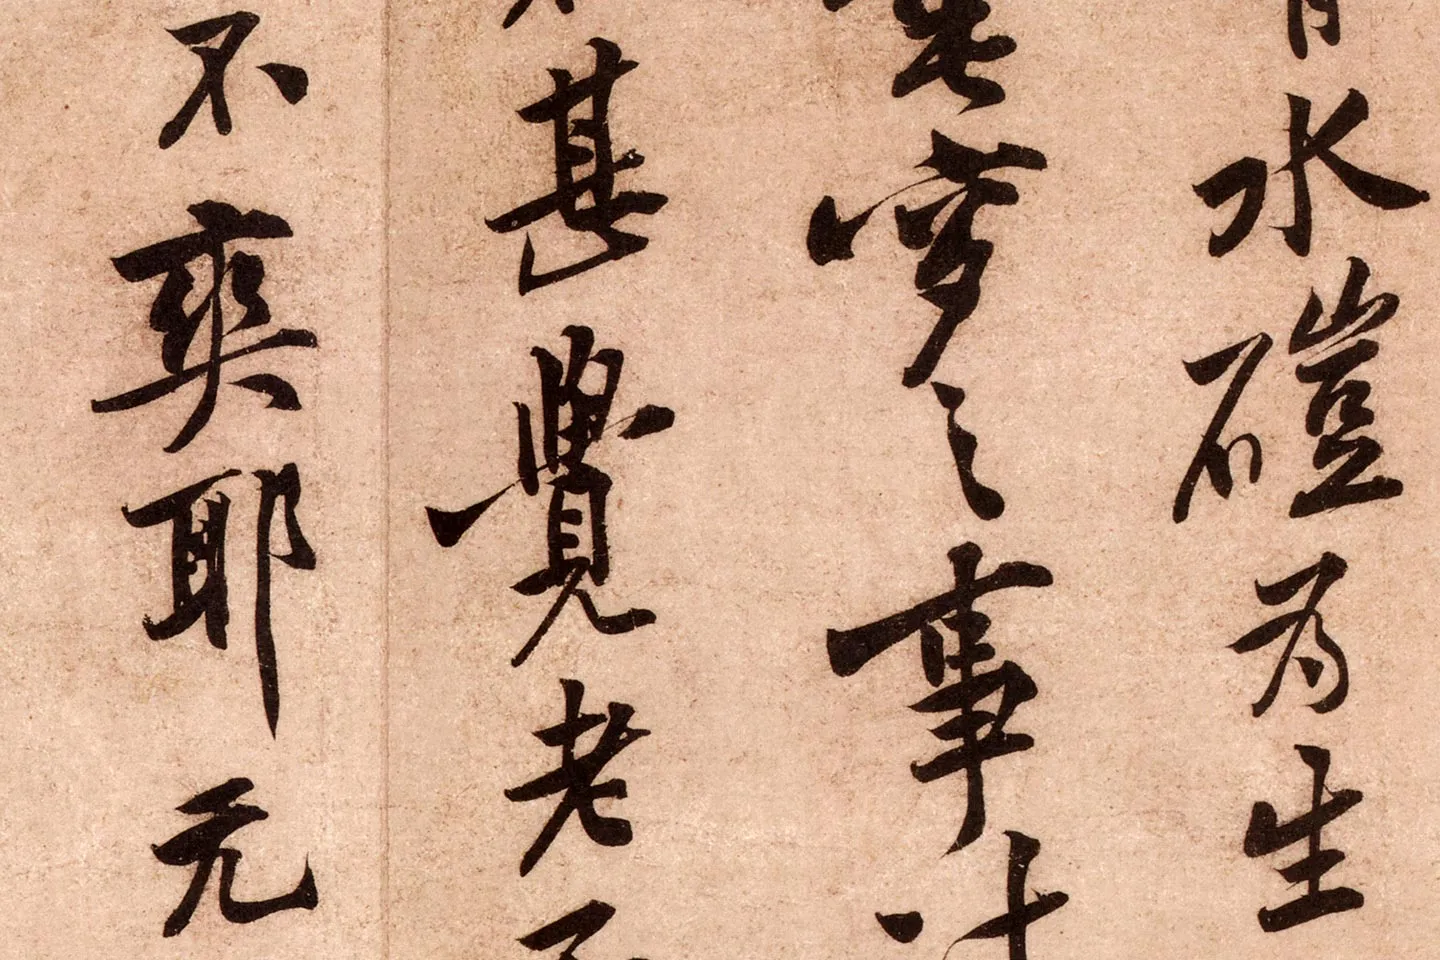 水磑為生
之事
甚覺老
不爽耶元